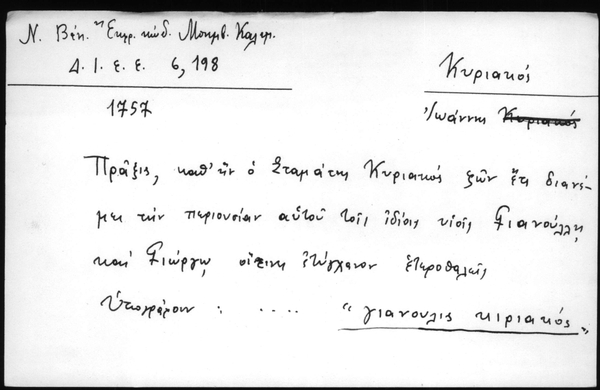 Ν. Βέη. "Εκφρ. κώδ. Μονεμβ. Καλαμ.
Δ. Ι. ε. ε. 6, 198
Κυριακός
1757
Ἰωάννης Κυριακός
Πρᾶξις, καθ' ἣν ὁ Σταμάτης Κυριακός ζῶν ἔτι διανέ-
μει τὴν περιουσίαν αὑτοῦ τοῖς ἰδίοις υἱοῖς Γιανούλλῃ
καὶ Γιώργῳ, οἵτινες ἐτύγχανον ἑτεροθαλεῖς
Ὑπογράφουν : .... "γιανουλις κιριακός"